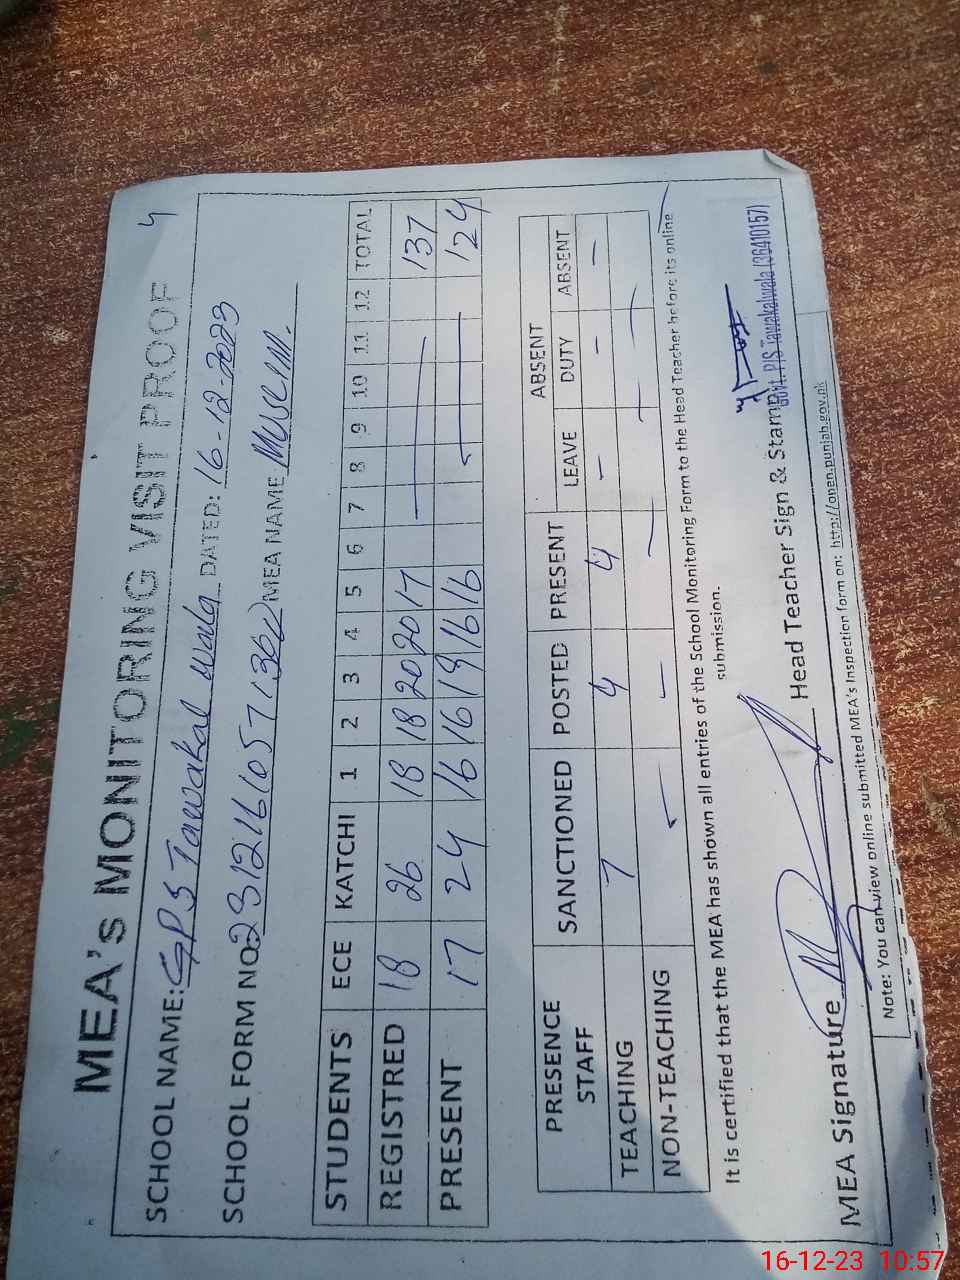 4
MEA's MONITORING VISIT PROOF
SCHOOL NAME: GPS Tawakal Wala DATED: 16-12-2023
SCHOOL FORM NO. MEA NAME
STUDENTS ECE KATCHI 1 2 3 4 5 6 7 8 9 10 11 12 TOTAL
REGISTRED 18 26 18 18 20 20 17 137
PRESENT 17 24 16 16 19 16 16 124
PRESENCE STAFF SANCTIONED POSTED PRESENT ABSENT
LEAVE DUTY ABSENT
TEACHING 7 4 4 - - -
NON-TEACHING - - - - -
It is certified that the MEA has shown all entries of the School Monitoring Form to the Head Teacher before its online
submission.
MEA Signature Head Teacher Sign & Stamp
Govt. P/S Tawakalwala (36410157)
Note: You can view online submitted MEA's Inspection form on: http://open.punjab.gov.pk
16-12-23 10:57